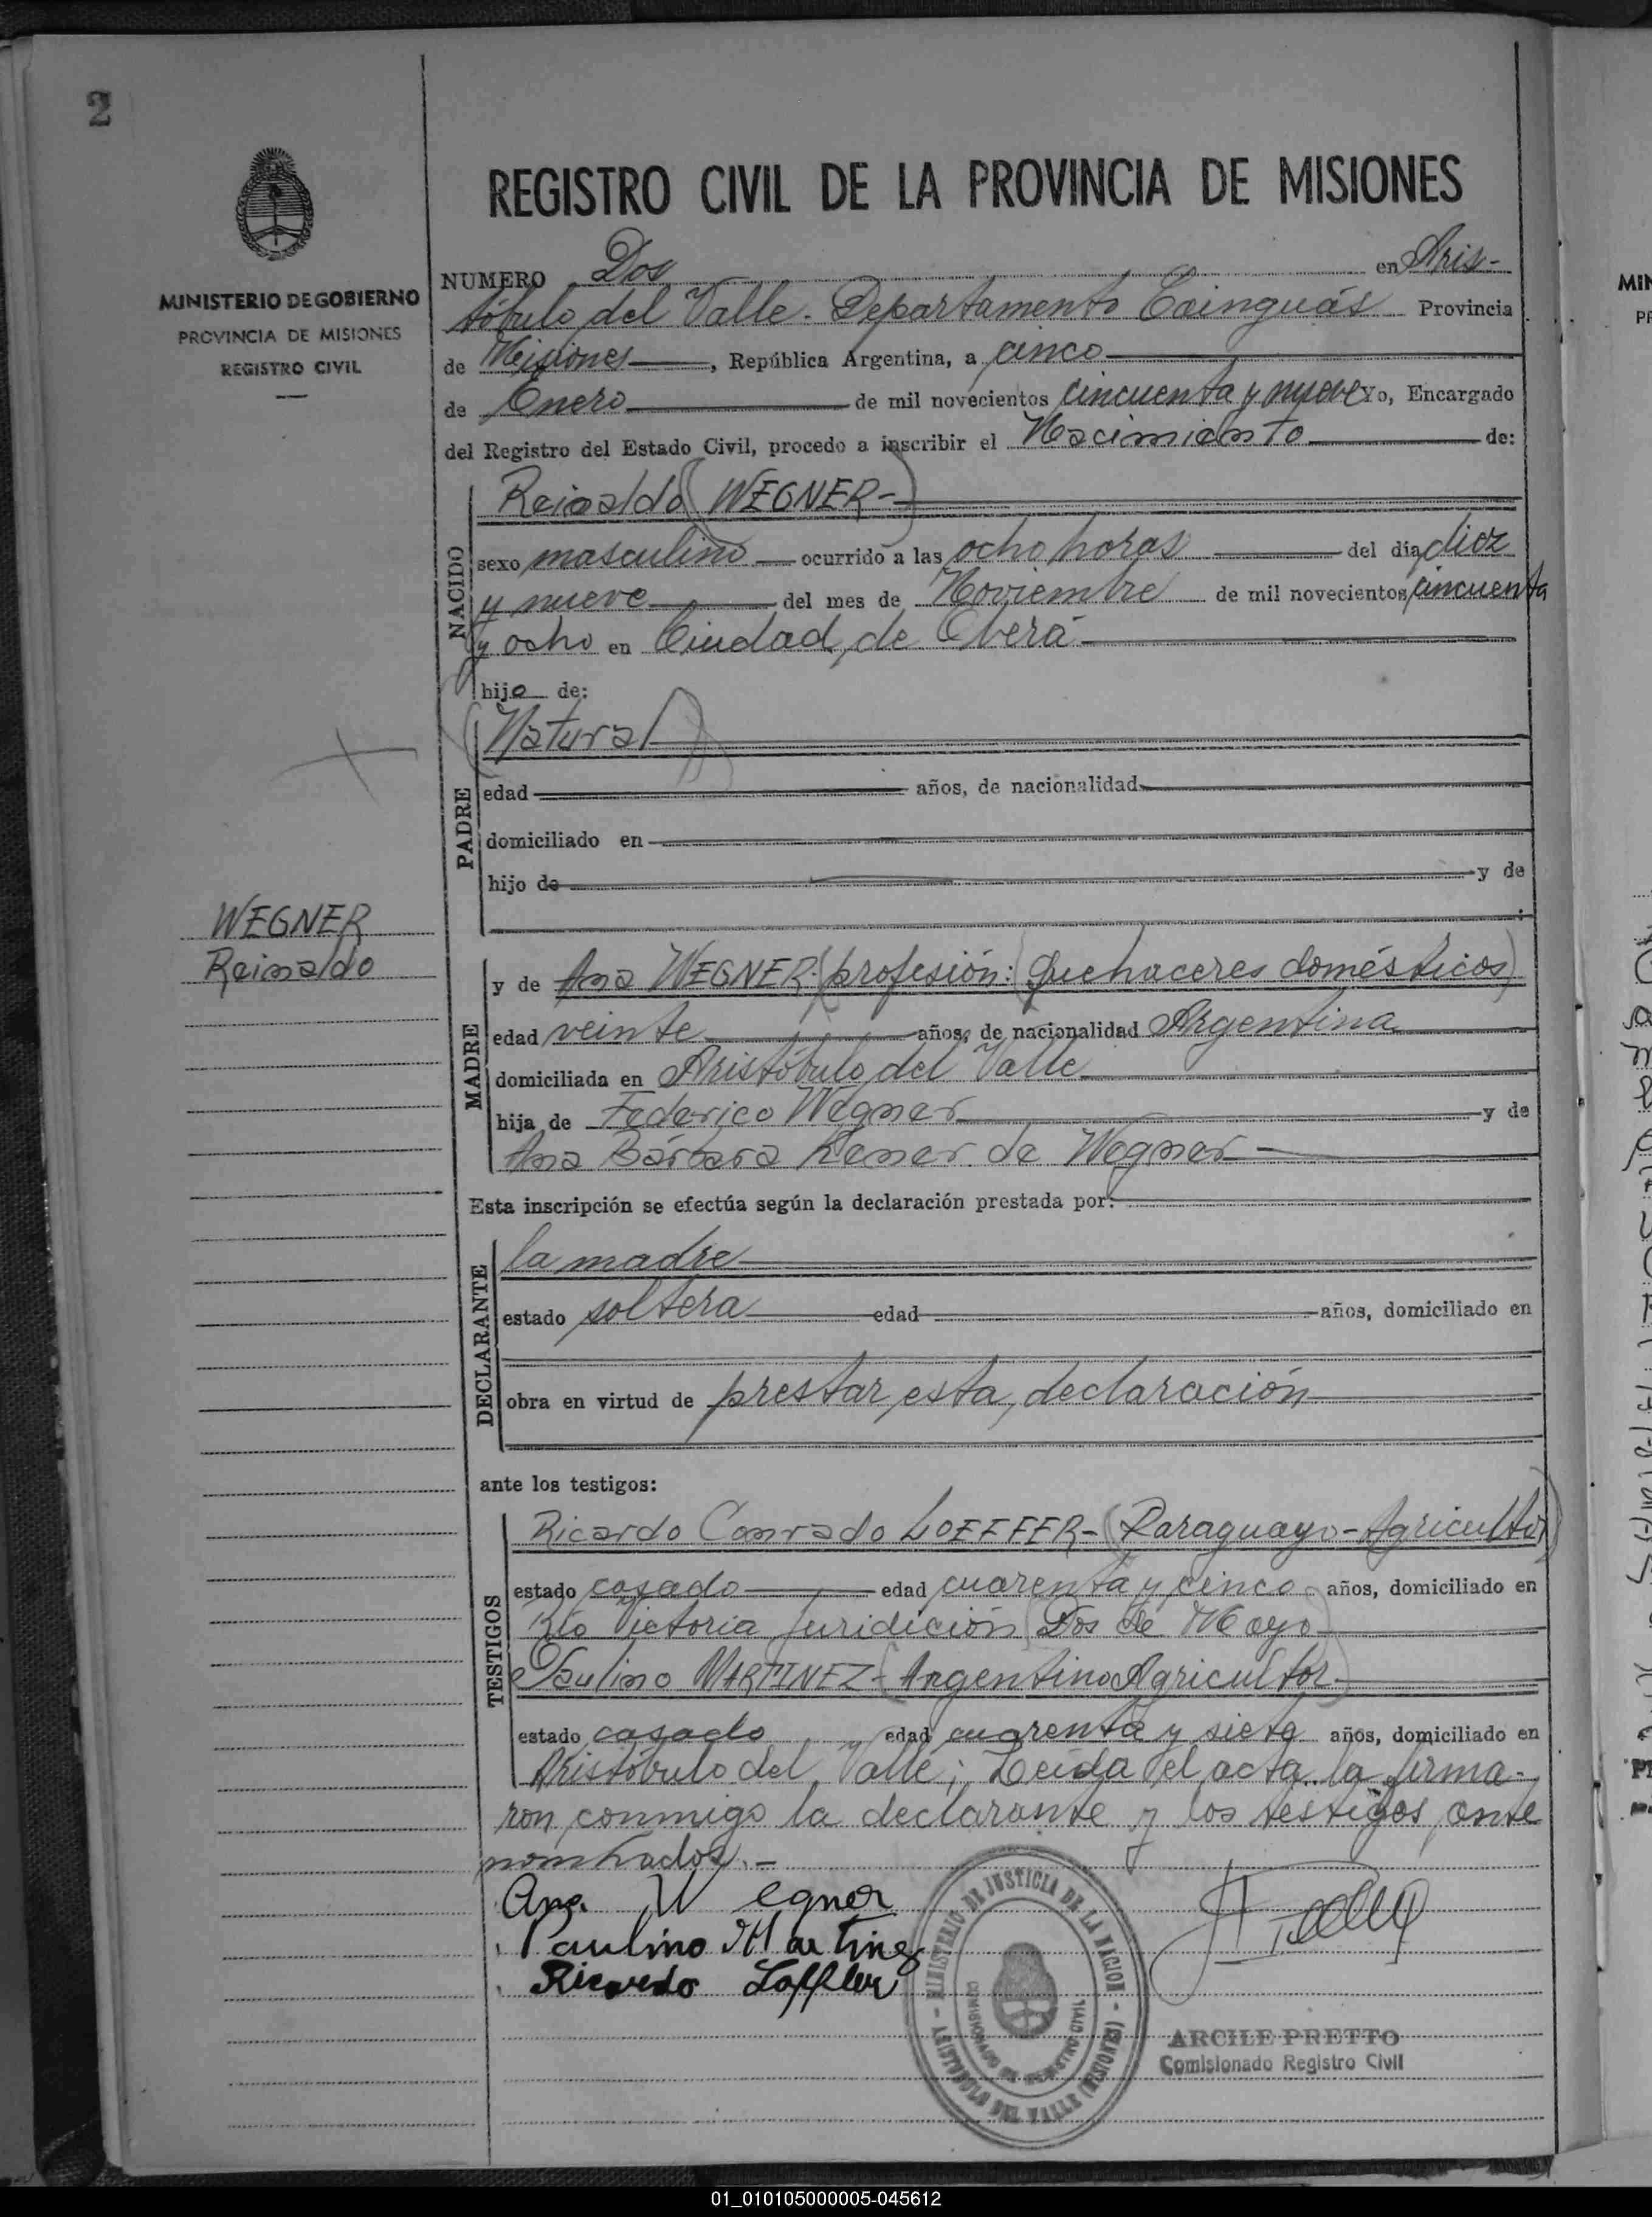 2
MINISTERIO DE GOBIERNO
PROVINCIA DE MISIONES
REGISTRO CIVIL
WEGNER
Reinaldo
REGISTRO CIVIL DE LA PROVINCIA DE MISIONES
NUMERO Dos en Aris-
tóbulo del Valle. Departamento Cainguás Provincia
de Misiones, República Argentina, a cinco
de Enero de mil novecientos cincuenta y nueve Yo, Encargado
del Registro del Estado Civil, procedo a inscribir el Nacimiento de:
NACIDO
Reinaldo (WEGNER-)
sexo masculino ocurrido a las ocho horas del día diez
y nueve del mes de Noviembre de mil novecientos cincuenta
y ocho en Ciudad de Oberá
hijo de:
PADRE
(Natural)
edad años, de nacionalidad
domiciliado en
hijo de y de
MADRE
y de Ana WEGNER. (profesión: (quehaceres domésticos)
edad veinte años, de nacionalidad Argentina
domiciliada en Aristóbulo del Valle
hija de Federico Wegner y de
Ana Bárbara de Wegner
Esta inscripción se efectúa según la declaración prestada por:
DECLARANTE
la madre
estado soltera edad años, domiciliado en
obra en virtud de prestar esta declaración
ante los testigos:
TESTIGOS
Ricardo Conrado LOEFFER- (Paraguayo-Agricultor)
estado casado edad cuarenta y cinco años, domiciliado en
Río Victoria Juridición Dos de Mayo
Paulino MARTINEZ- (Argentino Agricultor)
estado casado edad cuarenta y siete años, domiciliado en
Aristóbulo del Valle; Leída el acta la firma-
ron conmigo la declarante y los testigos ante
nombrados.-
Ana Wegner
Paulino Martinez
Ricardo Loffler
- MINISTERIO DE JUSTICIA DE LA NACION -
COMISIONADO DE REGISTRO CIVIL
ARISTOBULO DEL VALLE (MISIONES)
ARCILE PRETTO
Comisionado Registro Civil
01_010105000005-045612